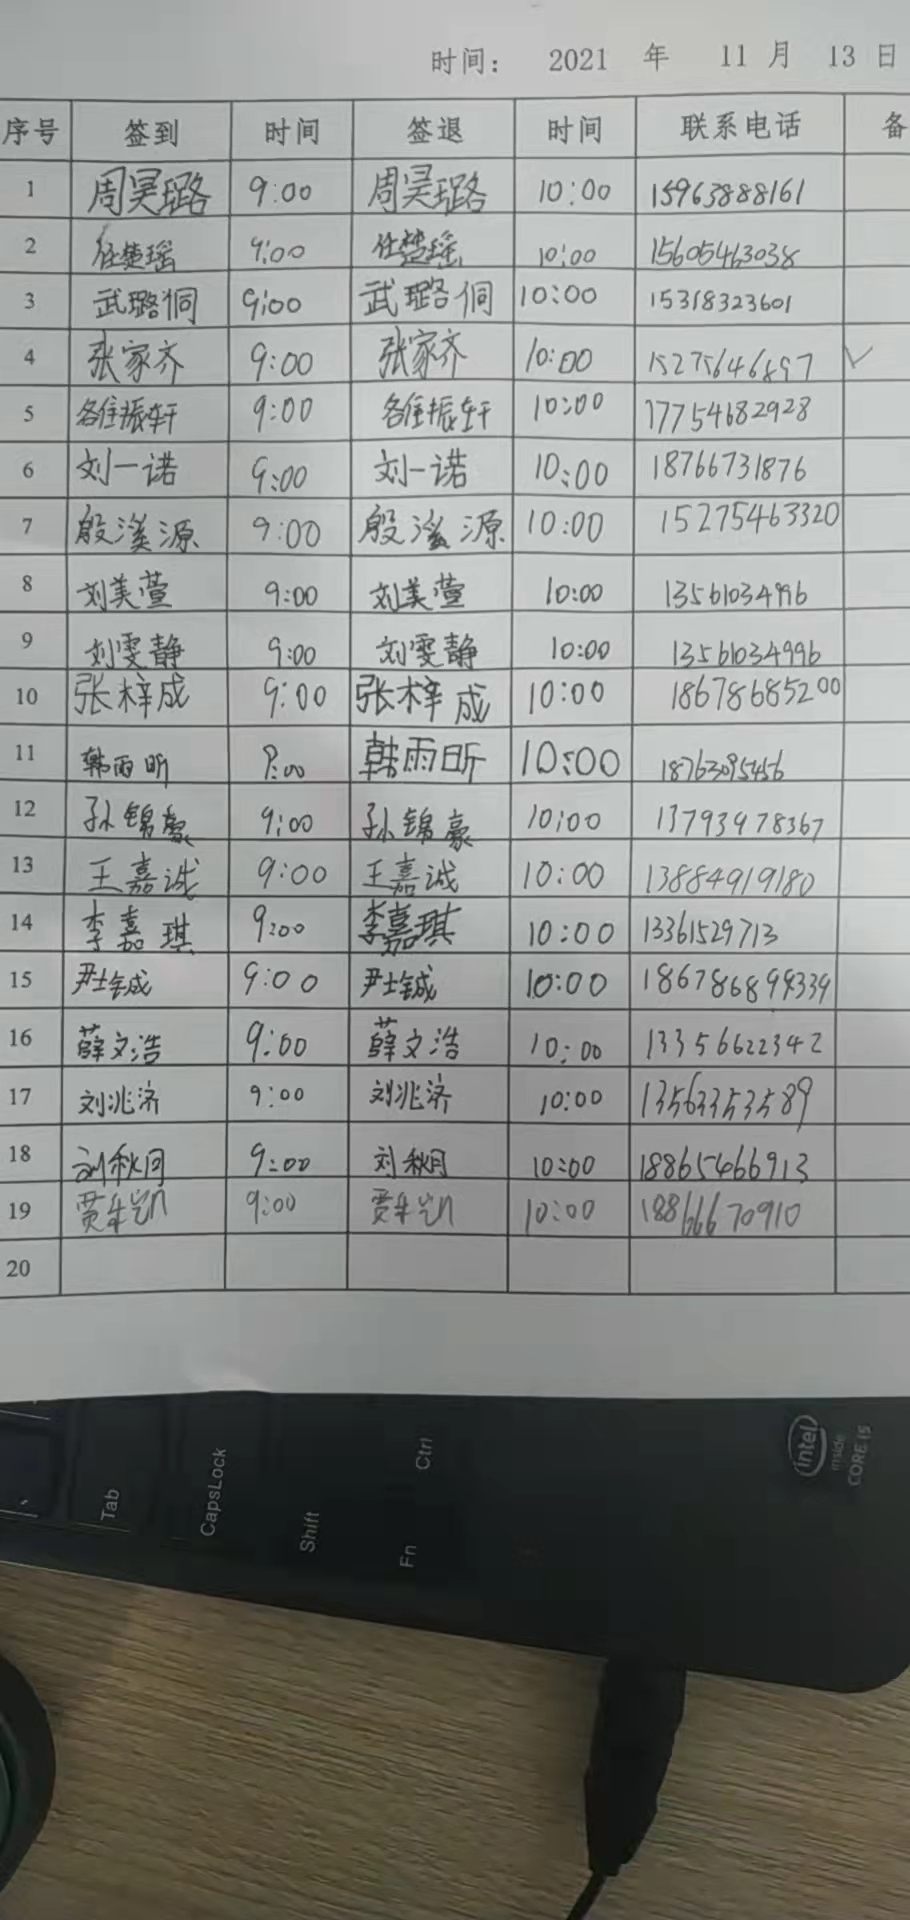 时间： 2021 年 11 月 13 日
序号 签到 时间 签退 时间 联系电话 备
1 周昊璐 9:00 周昊璐 10:00 15963888161
2 任楚瑶 9:00 任楚瑶 10:00 15605463038
3 武璐侗 9:00 武璐侗 10:00 15318323601
4 张家齐 9:00 张家齐 10:00 15275646897 ✓
5 振轩 9:00 振轩 10:00 17754682928
6 刘一诺 9:00 刘一诺 10:00 18766731876
7 殷溪源 9:00 殷溪源 10:00 15275463320
8 刘美萱 9:00 刘美萱 10:00 13561034996
9 刘雯静 9:00 刘雯静 10:00 13561034996
10 张梓成 9:00 张梓成 10:00 18678685200
11 韩雨昕 9:00 韩雨昕 10:00 18763095456
12 孙锦豪 9:00 孙锦豪 10:00 13793978367
13 王嘉诚 9:00 王嘉诚 10:00 13884919180
14 李嘉琪 9:00 李嘉琪 10:00 13361529713
15 尹士铖 9:00 尹士铖 10:00
16 薛文浩 9:00 薛文浩 10:00 13356622342
17 刘兆济 9:00 刘兆济 10:00 13563353589
18 刘秋月 9:00 刘秋月 10:00 18865466913
19 贾 9:00 贾 10:00 18866670910
20
Tab
CapsLock
Shift
Ctrl
Fn
intel
inside
CORE i5